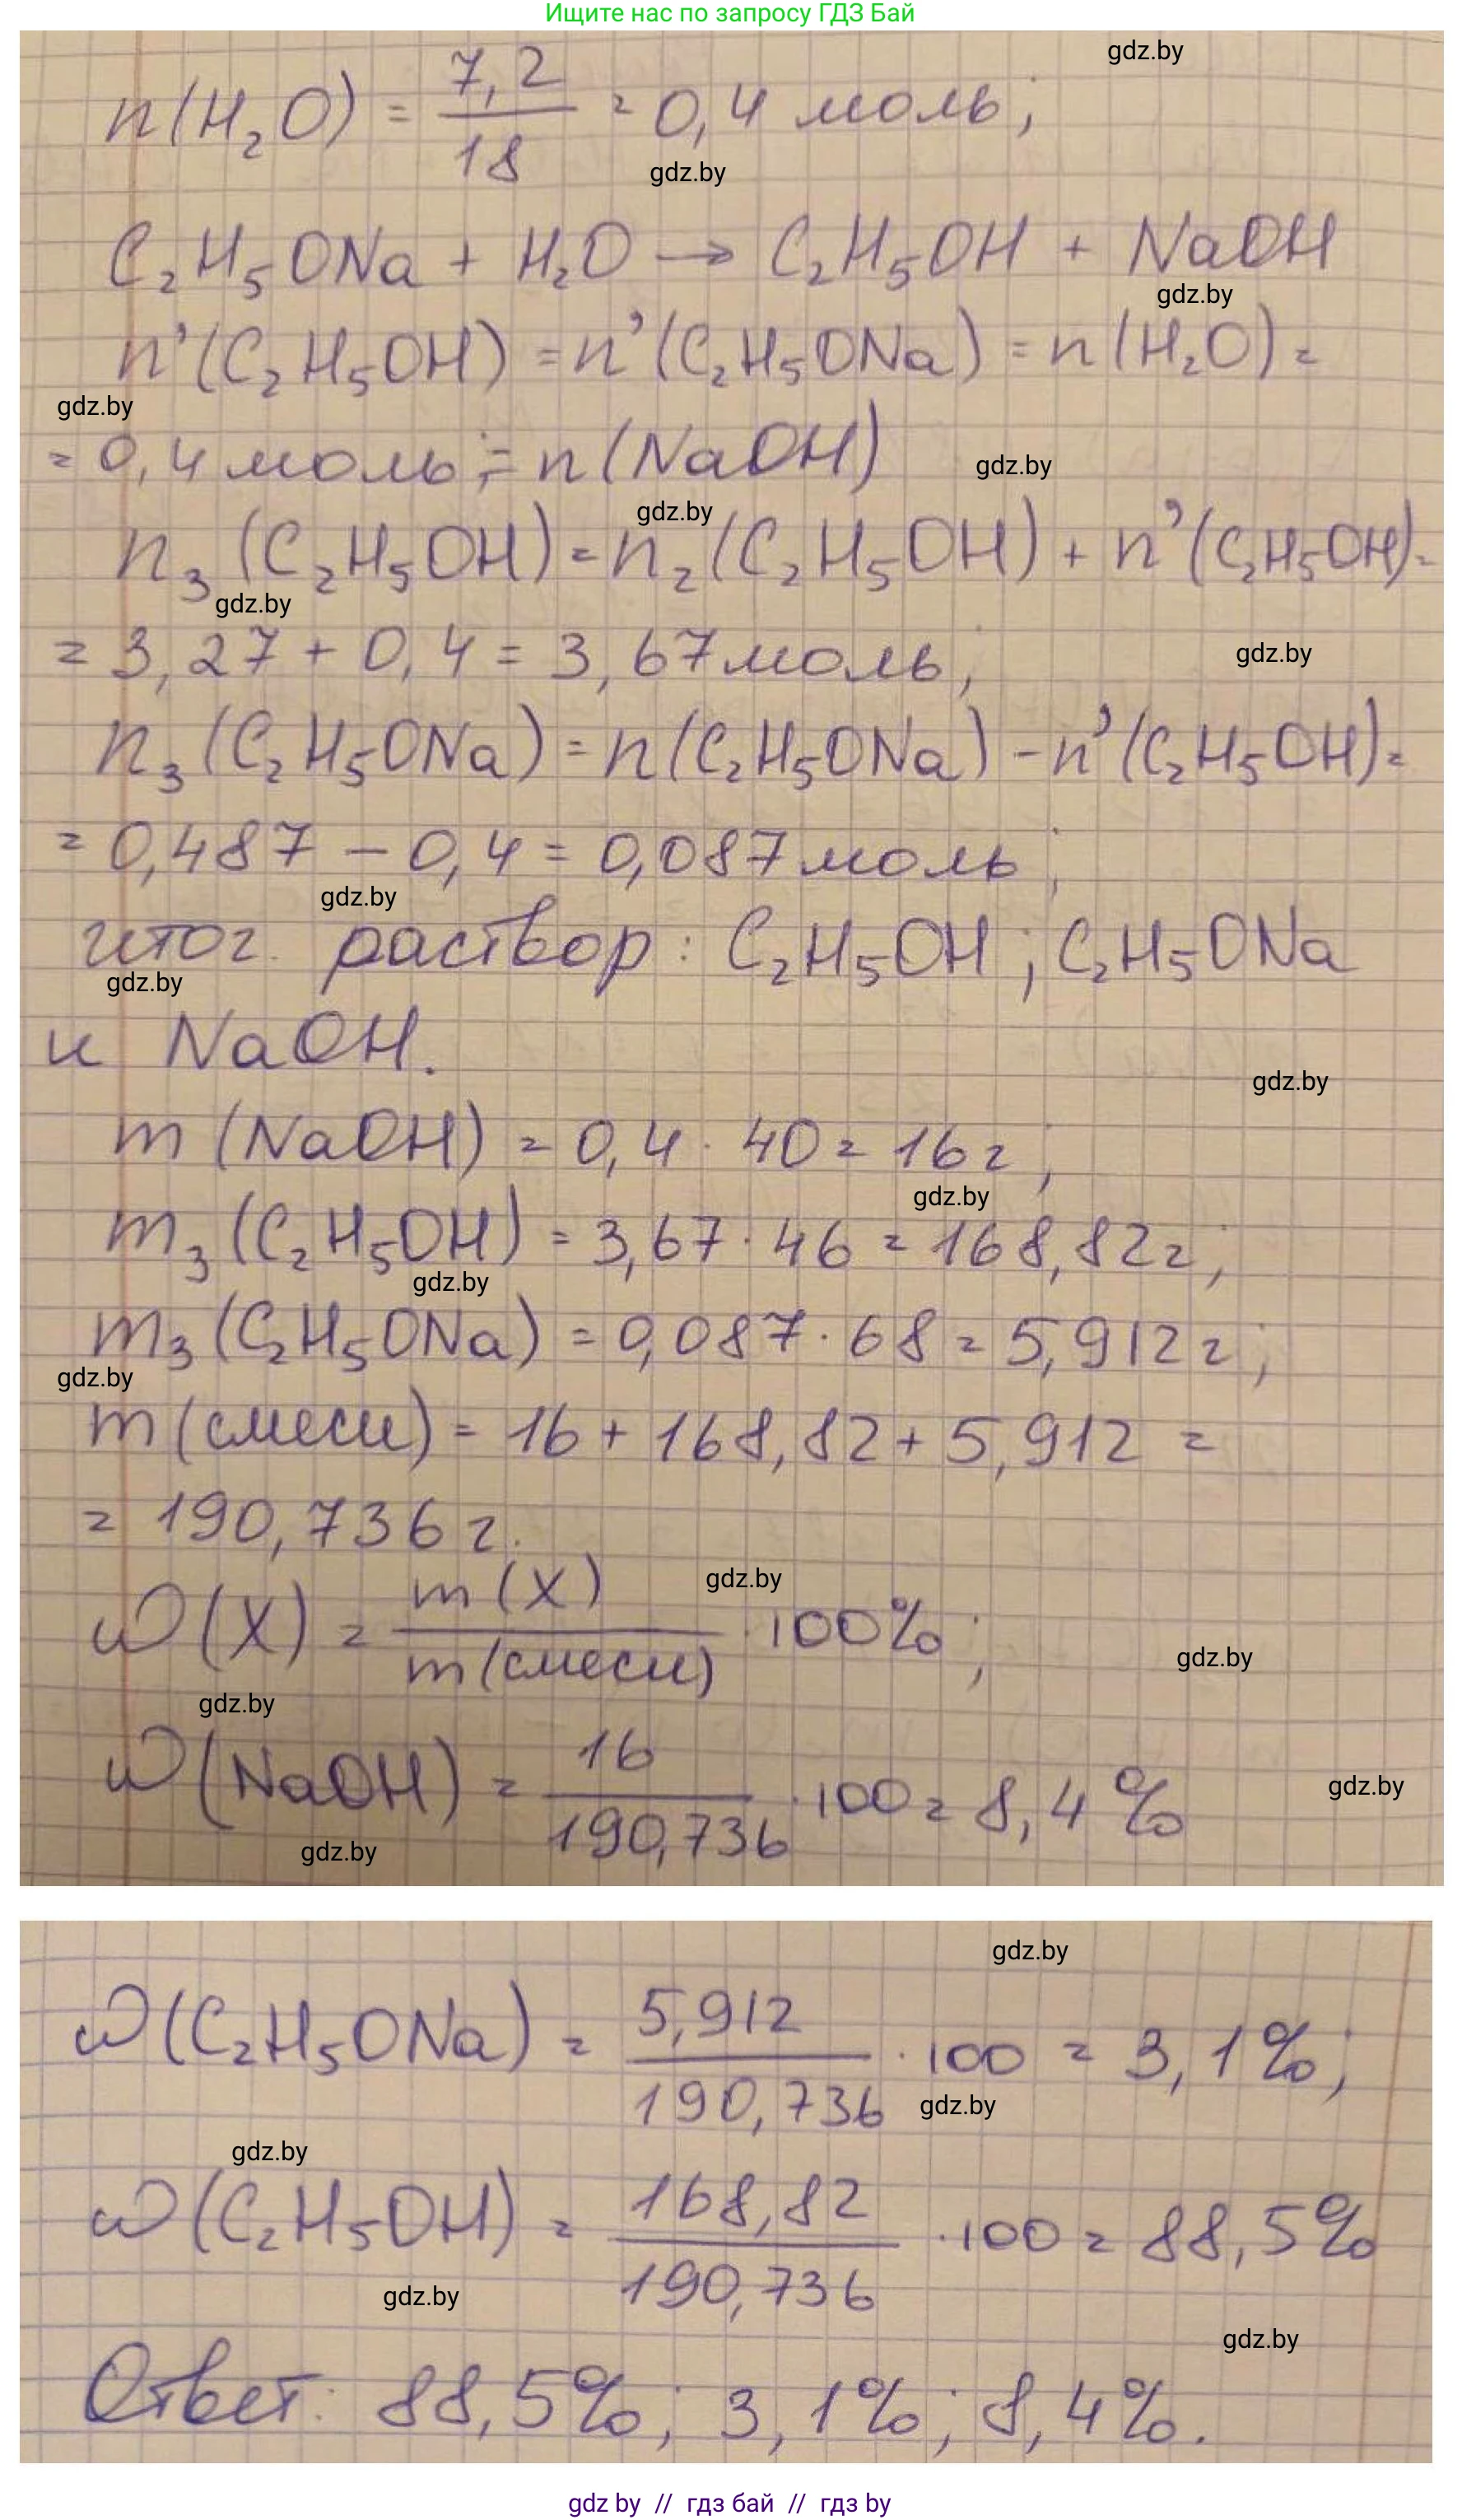 Ищите нас по запросу ГДЗ Бай
gdz.by
n(H₂O) = 7,2/18 = 0,4 моль;
gdz.by
C₂H₅ONa + H₂O → C₂H₅OH + NaOH
gdz.by
n'(C₂H₅OH) = n'(C₂H₅ONa) = n(H₂O) =
gdz.by
= 0,4 моль; = n(NaOH)
gdz.by
gdz.by
n₃(C₂H₅OH) = n₂(C₂H₅OH) + n'(C₂H₅OH) =
gdz.by
= 3,27 + 0,4 = 3,67 моль;
gdz.by
n₃(C₂H₅ONa) = n(C₂H₅ONa) - n'(C₂H₅OH) =
= 0,487 - 0,4 = 0,087 моль;
gdz.by
итог. раствор: C₂H₅OH; C₂H₅ONa
gdz.by
и NaOH.
gdz.by
m(NaOH) = 0,4 · 40 = 16 г;
gdz.by
m₃(C₂H₅OH) = 3,67 · 46 = 168,82 г;
gdz.by
m₃(C₂H₅ONa) = 0,087 · 68 = 5,912 г;
gdz.by
m(смеси) = 16 + 168,82 + 5,912 =
= 190,736 г.
gdz.by
ω(X) = m(X)/m(смеси) · 100%;
gdz.by
gdz.by
ω(NaOH) = 16/190,736 · 100 = 8,4%
gdz.by
gdz.by
gdz.by
ω(C₂H₅ONa) = 5,912/190,736 · 100 = 3,1%;
gdz.by
gdz.by
ω(C₂H₅OH) = 168,82/190,736 · 100 = 88,5%
gdz.by
gdz.by
Ответ: 88,5%; 3,1%; 8,4%.
gdz by // гдз бай // гдз by